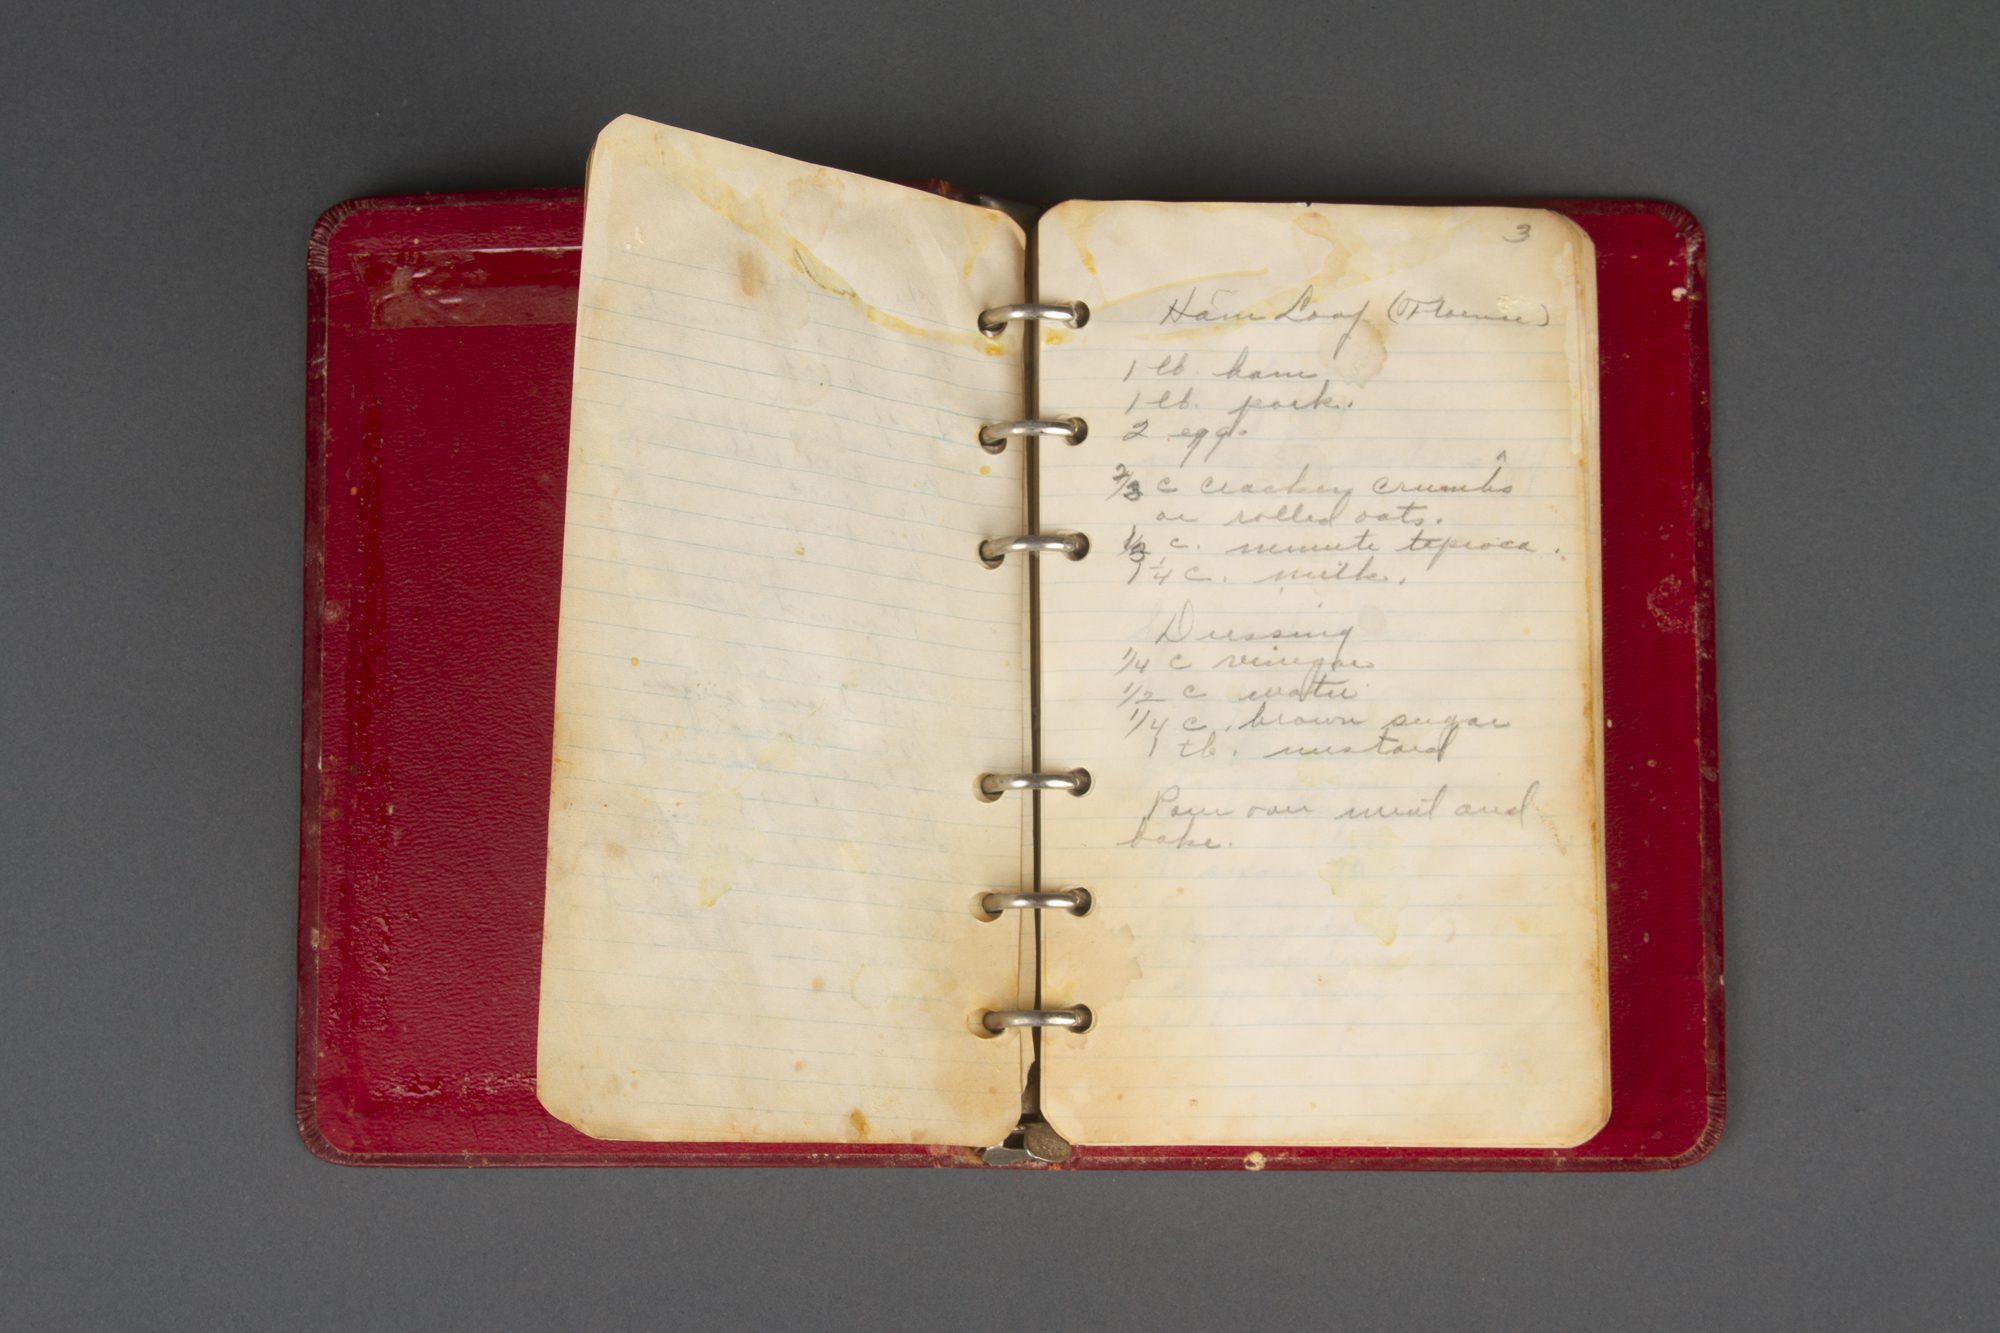 3
Ham Loaf (Florence)
1 lb. ham
1 lb. pork.
2 eggs
2/3 c cracker crumbs
or rolled oats.
c. minute tapioca.
1 1/4 c. milk.
Dressing
1/4 c vinegar
1/2 c water
1/4 c. brown sugar
1 tb. mustard
Pour over meat and
bake.